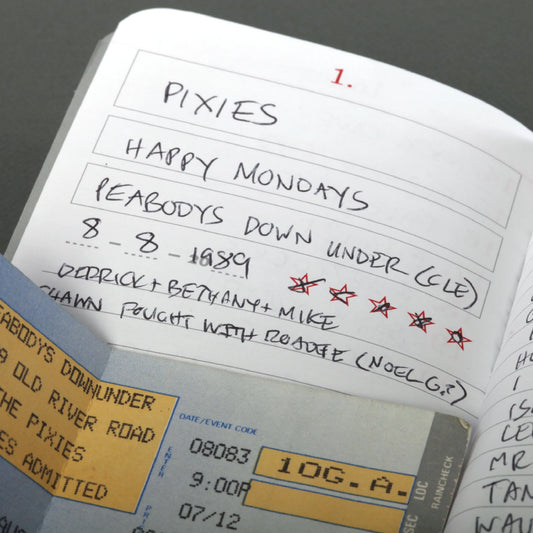 1.
PIXIES
HAPPY MONDAYS
PEABODYS DOWN UNDER (CLE)
8 - 8 - 1989
DERRICK + BETHANY + MIKE
SHAWN FOUGHT WITH ROADIE (NOEL G?)
EABODYS DOWNUNDER
9 OLD RIVER ROAD
THE PIXIES
ES ADMITTED
DATE/EVENT CODE
ENTER
08083
9:00P
07/12
10G.A.
SEC
LOC
RAINCHECK
I
MR
TAN